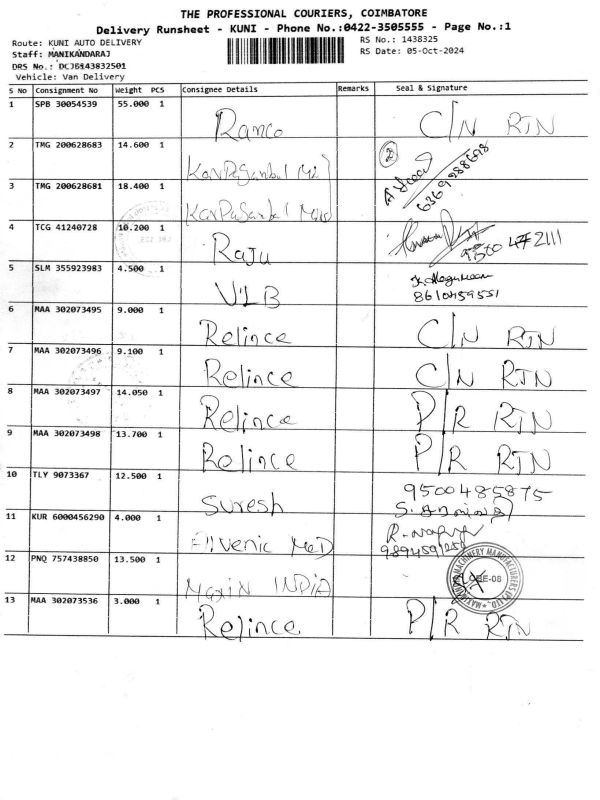 THE PROFESSIONAL COURIERS, COIMBATORE
Delivery Runsheet - KUNI - Phone No.:0422-3505555 - Page No.:1
Route: KUNI AUTO DELIVERY RS No.: 1438325
Staff: MANIKANDARAJ RS Date: 05-Oct-2024
DRS No.: DCJB143832501
Vehicle: Van Delivery
S No Consignment No Weight PCS Consignee Details Remarks Seal & Signature
1 SPB 30054539 55.000 1 Ramco C/N RTN
2 TMG 200628683 14.600 1 2
3 TMG 200628681 18.400 1 6369988678
4 TCG 41240728 10.200 1 Raju 2111
5 SLM 355923983 4.500 1 VLB
8610459551
6 MAA 302073495 9.000 1 Relince C/N RTN
7 MAA 302073496 9.100 1 Relince C/N RTN
8 MAA 302073497 14.050 1 Relince P/R RTN
9 MAA 302073498 13.700 1 Relince P/R RTN
10 TLY 9073367 12.500 1 Suresh 9500485875
11 KUR 6000456290 4.000 1 Ellvenic MeD
12 PNQ 757438850 13.500 1 Maxin INDIA
13 MAA 302073536 3.000 1 Relince P/R RTN